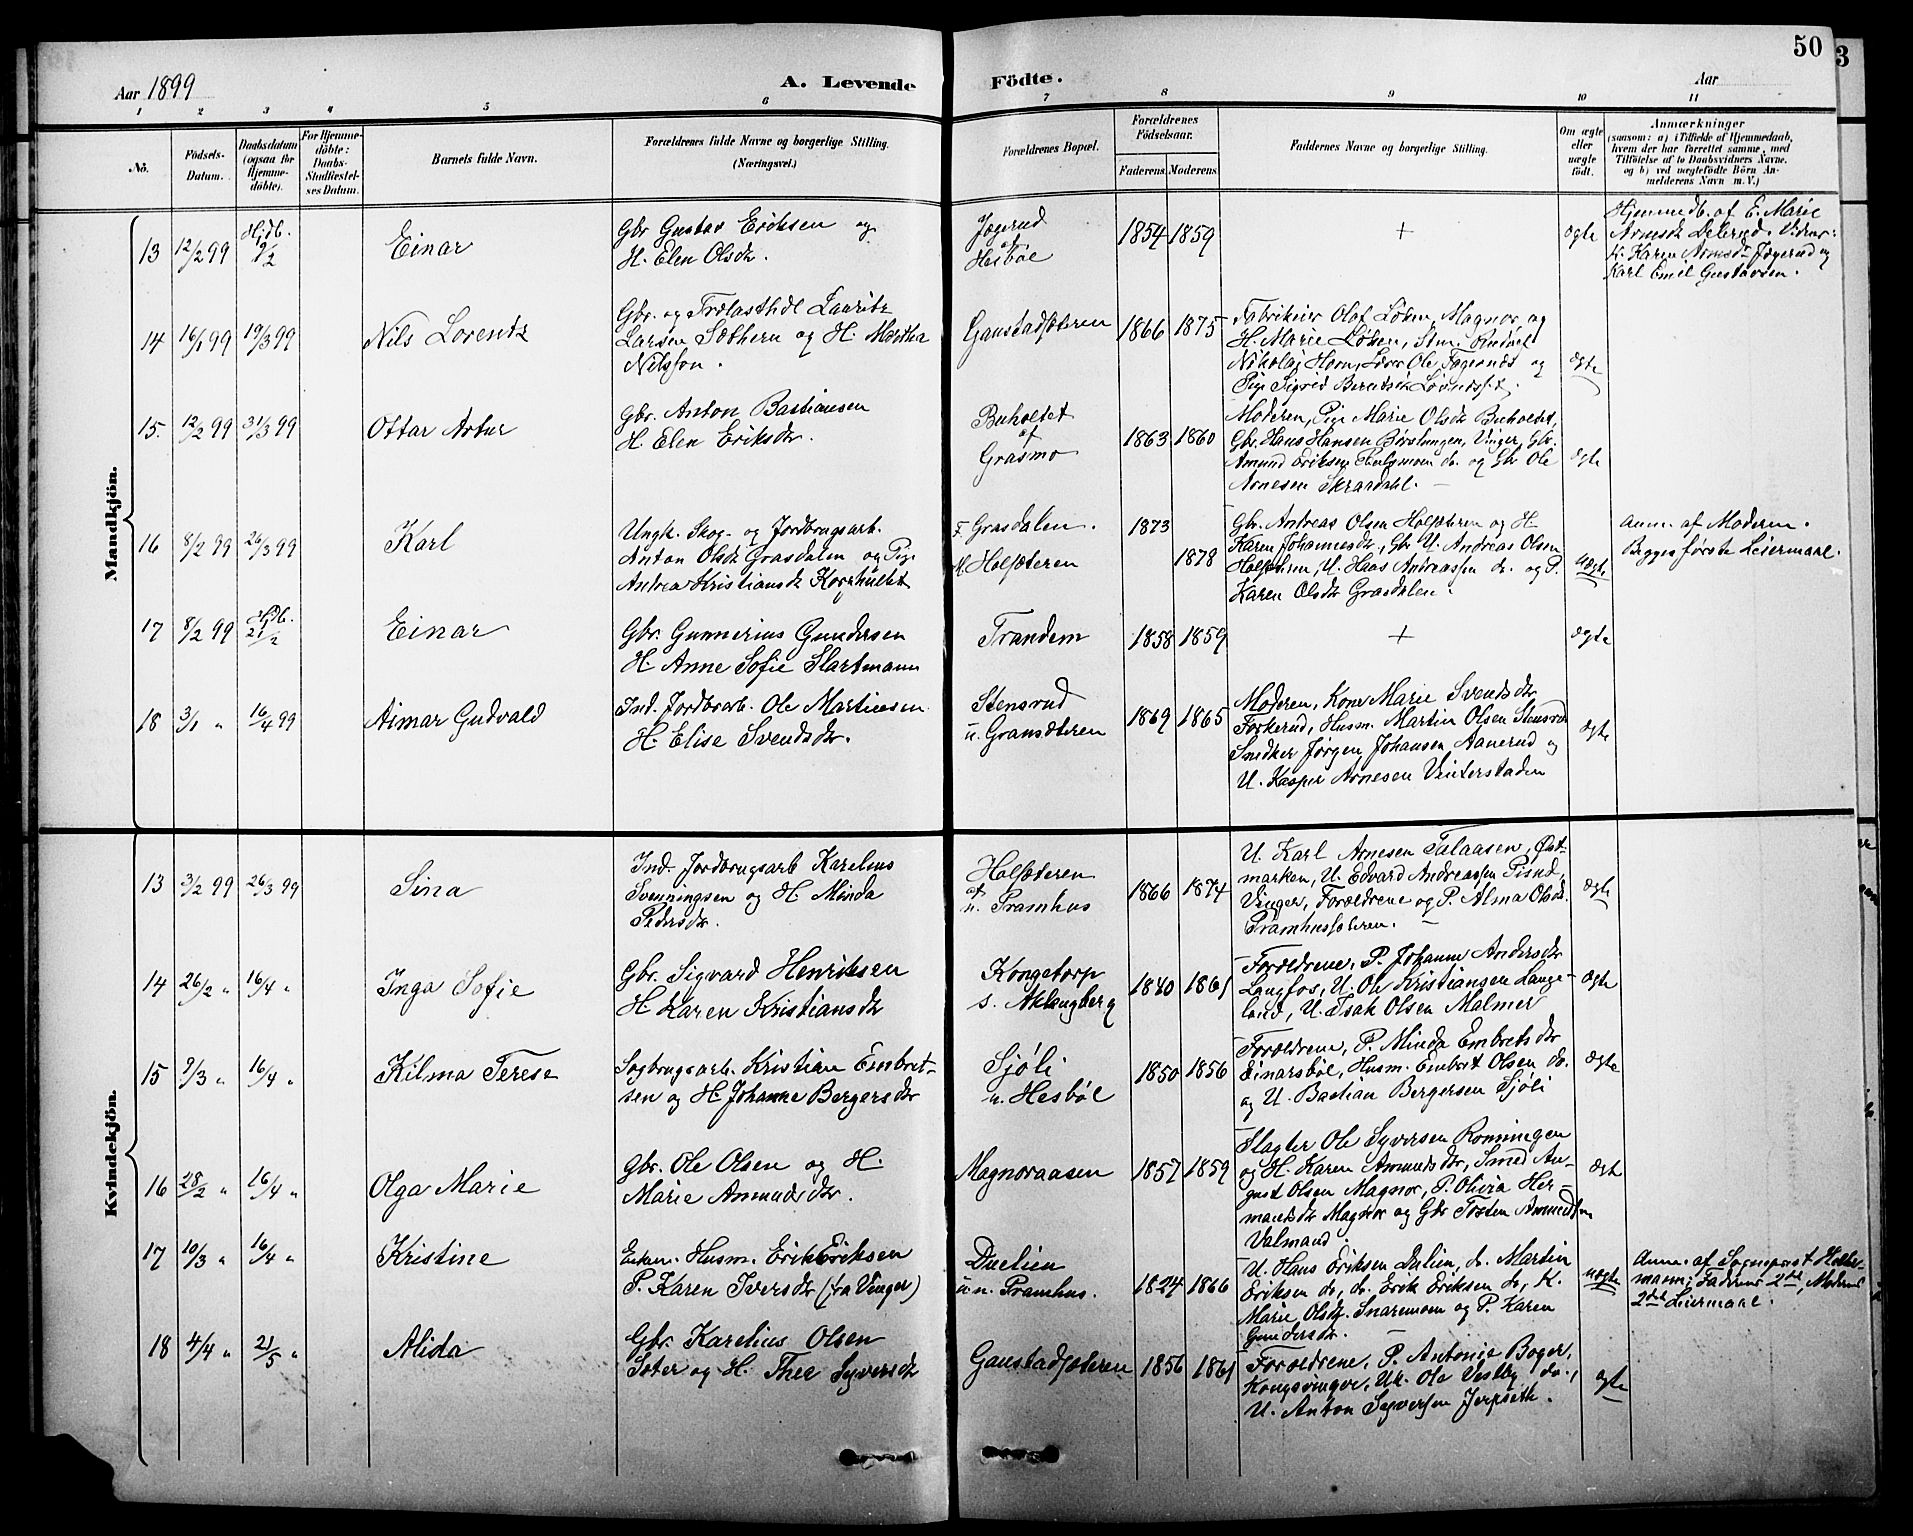 50
3
Aar 1899
A. Levende
Födte.
Aar
1 2 3 4 5 6 7 8 9 10 11
No.
Födsels-
Datum.
Daabsdatum
(ogsaa for
Hjemme-
döbte).
For Hjemme-
döbte:
Daabs-
Stadfæstel-
ses Datum.
Barnets fulde Navn.
Forældrenes fulde Navne og borgerlige Stilling.
(Næringsvei.)
Forældrenes Bopæl.
Forældrenes
Födselsaar.
Faderens. Moderens.
Faddernes Navne og borgerlige Stilling.
Om ægte
eller
uægte
födt.
Anmærkninger
(saasom: a) i Tilfælde af Hjemmedaab,
hvem der har forrettet samme, med
Tilföielse af to Daabsvidners Navne,
og b) ved uægtefödte Börn An-
melderens Navn m. V.)
Mandkjön.
13 12/2 99 Hjdb. 9/2
Einar
Gbr Gustav Eriksen og
H. Elen Olsdr.
Jægerud
af
Hesbøl
1854 1859
+
ægte
Hjemmedb. af E. Marie
Arnesdr Vidner:
K. Karen Arnesdr Jægerud og
Karl Emil Gustavsen.
14 16/1 99 19/3 99
Nils Lorentz
Gbr. og Lauritz
Larsen Sobhern og H. Martha
Nilsson.
Gaustadsæteren
1866 1875
Fabrikeier Olaf Løken, Magnor og
H. Marie Løken, Stm.
Nikolaj Horn, Lærer Ole Fagernæs og
Pige Sigrid Berntsdr
ægte
15. 12/2 99 31/3 99
Ottar Artur
Gbr. Anton Bastiansen
H. Elen Eriksdr.
Buholtet
af
Grasmo
1863 1860
Moderen, Pige Marie Olsdr Buholtet,
Gbr. Hans Hansen Vinger, Gbr.
Amund Eriksen do. og Gbr Ole
Arnesen Skraadahl.
ægte
16 8/2 99 26/3 99
Karl
Ungk. Skog- og Jordbrugsarb.
Anton Olsen Grasdalen og Pige
Andrea Kristiansdr Korshultet
F. Grasdalen.
M. Holsæteren
1873
1878
Gbr. Andreas Olsen Holsæteren og H.
Karen Johannesdr, Gbr U. Andreas Olsen
Holsæteren, U. Hans Andreassen do. og P.
Karen Olsdr Grasdalen.
uægte
Anm. af Moderen.
Begges første Leiermaal.
17 8/2 99 Hjdb. 21/2
Einar
Gbr. Gunnerius Gundersen
H. Anne Sofie Slartmann
Trandem
1858 1859
+
ægte
18 3/1 " 16/4 99
Aimar Gudvald
Ind. Jordbrarb. Ole Martinsen
H. Elise Svendsdr.
Stensrud
u. Gransæteren
1869 1865
Moderen, Kone Marie Svendsdr
Forkerud, Husm. Martin Olsen Stensrud
Snedker Jørgen Johansen Aanerud og
U. Kasper Arnesen Vinterstaden
ægte
Kvindekjön.
13 3/2 99 26/3 99
Sina
Ind. Jordbrugsarb Karelius
Svenningsen og H. Minda
Pedersdr.
Holsæteren
af
u. Pramhus
1866 1874
U. Karl Arnesen Øst-
marken, U. Edvard Andreassen
Vinger, Forældrene og P. Alma Olsdr
Pramhussæteren.
ægte
14 26/2 " 16/4 "
Inga Sofie
Gbr. Sigvard Henriksen
H. Karen Kristiansdr
Kongetorp
s. Aklangberg
1840 1861
Forældrene, P. Johanne Andersdr
Langfos, U. Ole Kristiansen Lange-
land, U. Isak Olsen Malmer
ægte
15 9/3 " 16/4 "
Kilma Terese
Sagbrugsarb. Kristian Embret-
sen og H. Johanne Bergersdr
Sjøli
u. Hesbøl
1850 1856
Forældrene, P. Minda Embretsdr
Einarsbøl, Husm. Embret Olsen do.
og U. Bastian Bergersen Sjøli
ægte
16 28/2 " 16/4 "
Olga Marie
Gbr. Ole Olsen og H.
Marie Amundsdr.
Magnoraasen
1857 1859
Slagter Ole Syversen Ronningen
og H. Karen Amundsdr, Smed Au-
gust Olsen Magnor, P. Olivia Her-
mansdr Magnor og Gbr Tosten Amundsen
Valmand.
ægte
17 10/3 " 16/4 "
Kristine
Enkem. Husm. Erik Eriksen
P. Karen Iversdr (fra Vinger)
Duelien
u. Pramhus.
1824 1866
U. Hans Eriksen Dulien, do. Martin
Eriksen do, do. Erik Eriksen do, K.
Marie Olsdr. Snaremoen og P. Karen
Gundersdr.
uægte
Anm. af Sogneprest Holter-
mann; Faderens 2det, Moderens
2det Leiermaal.
18 4/4 " 21/5 "
Alida
Gbr. Karelius Olsen
Sæter og H. Thee Syversdr
Gaustadsæteren
1856 1861
Forældrene, P. Antonie Boger,
Kongsvinger, Uk. Ole Vestby do.,
U. Anton Syversen Jerpseth.
ægte